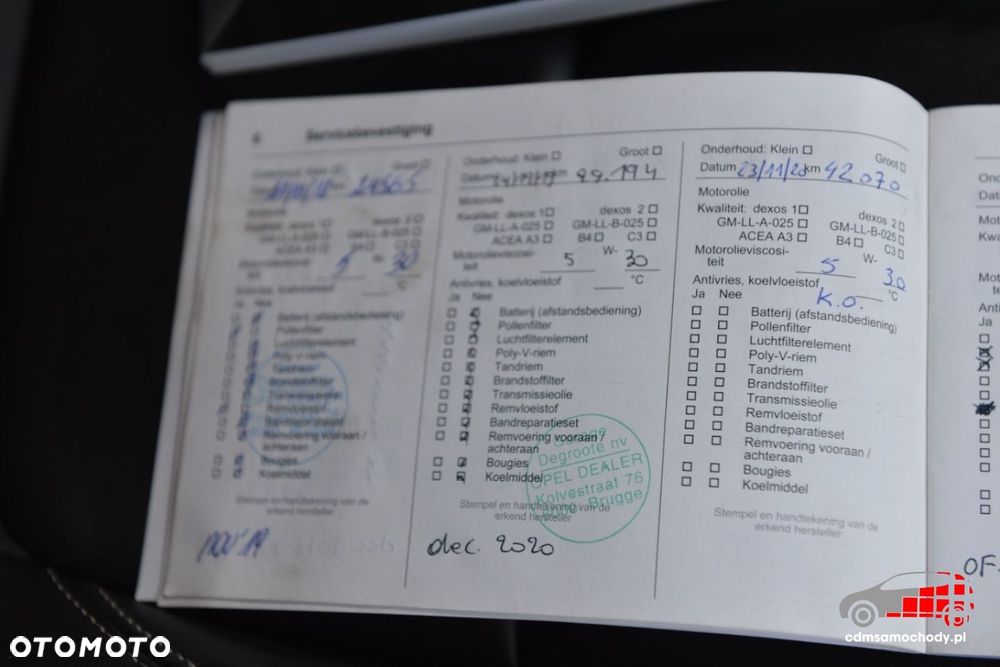 6 Servicebevestiging
Onderhoud: Klein Groot
24565
Kwaliteit: dexos 1 dexos 2
GM-LL-A-025 GM-LL-B-025
ACEA A3 B4 C3
Motorolieviscosi-
teit 5 W- 30
Antivries, koelvloeistof °C
Ja Nee
Batterij (afstandsbediening)
Pollenfilter
Luchtfilterelement
Poly-V-riem
Tandriem
Brandstoffilter
Transmissieolie
Remvloeistof
Bandreparatieset
Remvoering vooraan /
achteraan
Bougies
Koelmiddel
Stempel en handtekening van de
erkend hersteller
nov '19
Onderhoud: Klein Groot
Datum 29.194
Motorolie
Kwaliteit: dexos 1 dexos 2
GM-LL-A-025 GM-LL-B-025
ACEA A3 B4 C3
Motorolieviscosi-
teit 5 W- 30
Antivries, koelvloeistof °C
Ja Nee
Batterij (afstandsbediening)
Pollenfilter
Luchtfilterelement
Poly-V-riem
Tandriem
Brandstoffilter
Transmissieolie
Remvloeistof
Bandreparatieset
Remvoering vooraan /
achteraan
Bougies
Koelmiddel
Garage
Degroote nv
OPEL DEALER
Kolvestraat 76
8000 Brugge
Stempel en handtekening van de
erkend hersteller
dec. 2020
Onderhoud: Klein Groot
Datum 23/11/20 km 42 070
Motorolie
Kwaliteit: dexos 1 dexos 2
GM-LL-A-025 GM-LL-B-025
ACEA A3 B4 C3
Motorolieviscosi-
teit 5 W- 30
Antivries, koelvloeistof °C
K.O.
Ja Nee
Batterij (afstandsbediening)
Pollenfilter
Luchtfilterelement
Poly-V-riem
Tandriem
Brandstoffilter
Transmissieolie
Remvloeistof
Bandreparatieset
Remvoering vooraan /
achteraan
Bougies
Koelmiddel
Stempel en handtekening van de
erkend hersteller
Ja
OF
OTOMOTO
cdmsamochody.pl